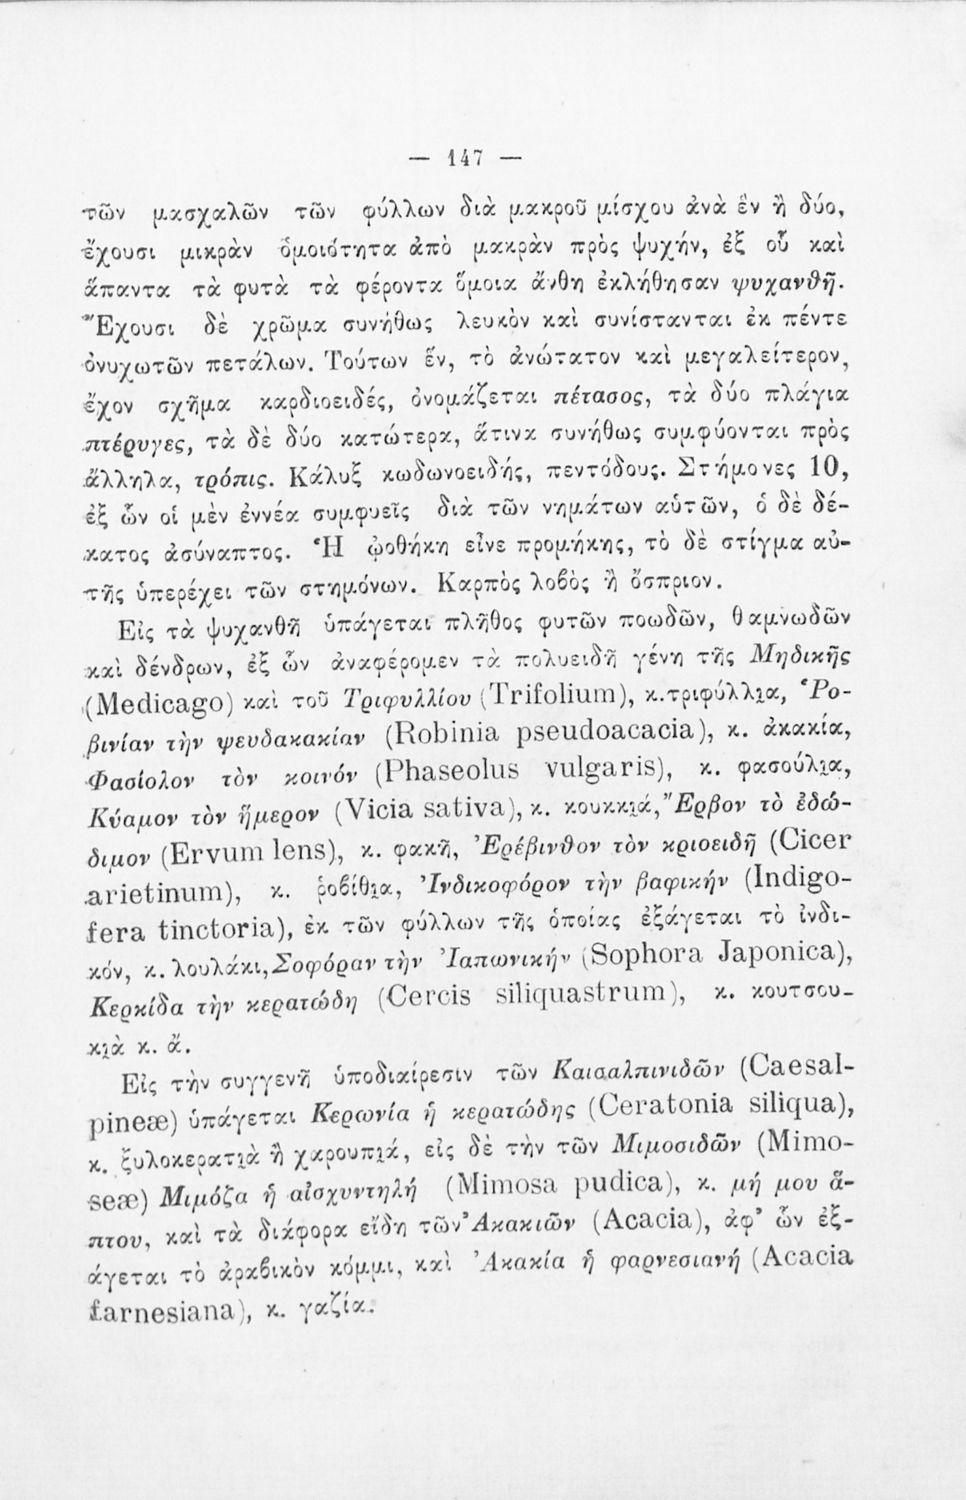 — 147 —
τῶν μασχαλῶν τῶν φύλλων διὰ μακροῦ μίσχου ἀνὰ ἓν ἢ δύο,
ἔχουσι μικρὰν ὁμοιότητα ἀπὸ μακρὰν πρὸς ψυχήν, ἐξ οὗ καὶ
ἅπαντα τὰ φυτὰ τὰ φέροντα ὅμοια ἄνθη ἐκλήθησαν ψυχανθῆ.
Ἔχουσι δὲ χρῶμα συνήθως λευκὸν καὶ συνίστανται ἐκ πέντε
ὀνυχωτῶν πετάλων. Τούτων ἕν, τὸ ἀνώτατον καὶ μεγαλείτερον,
ἔχον σχῆμα καρδιοειδές, ὀνομάζεται πέτασος, τὰ δύο πλάγια
πτέρυγες, τὰ δὲ δύο κατώτερα, ἅτινα συνήθως συμφύονται πρὸς
ἄλληλα, τρόπις. Κάλυξ κωδωνοειδής, πεντόδους. Στήμονες 10,
ἐξ ὧν οἱ μὲν ἐννέα συμφυεῖς διὰ τῶν νημάτων αὑτῶν, ὁ δὲ δέ-
κατος ἀσύναπτος. Ἡ ᾠοθήκη εἶνε προμήκης, τὸ δὲ στίγμα αὐ-
τῆς ὑπερέχει τῶν στημόνων. Καρπὸς λοβὸς ἢ ὄσπριον.
Εἰς τὰ ψυχανθῆ ὑπάγεται πλῆθος φυτῶν ποωδῶν, θαμνωδῶν
καὶ δένδρων, ἐξ ὧν ἀναφέρομεν τὰ πολυειδῆ γένη τῆς Μηδικῆς
(Medicago) καὶ τοῦ Τριφυλλίου (Trifolium), κ. τριφύλλι̯α, Ῥο-
βινίαν τὴν ψευδακακίαν (Robinia pseudoacacia), κ. ἀκακία,
Φασίολον τὸν κοινόν (Phaseolus vulgaris), κ. φασούλι̯α,
Κύαμον τὸν ἥμερον (Vicia sativa), κ. κουκκι̯ά, Ἔρβον τὸ ἐδώ-
διμον (Ervum lens), κ. φακῆ, Ἐρέβινθον τὸν κριοειδῆ (Cicer
arietinum), κ. ῥοβίθι̯α, Ἰνδικοφόρον τὴν βαφικήν (Indigo-
fera tinctoria), ἐκ τῶν φύλλων τῆς ὁποίας ἐξάγεται τὸ ἰνδι-
κόν, κ. λουλάκι, Σοφόραν τὴν Ἰαπωνικήν (Sophora Japonica),
Κερκίδα τὴν κερατώδη (Cercis siliquastrum), κ. κουτσου-
κι̯ὰ κ. ἄ.
Εἰς τὴν συγγενῆ ὑποδιαίρεσιν τῶν Καισαλπινιδῶν (Caesal-
pineæ) ὑπάγεται Κερωνία ἡ κερατώδης (Ceratonia siliqua),
κ. ξυλοκερατι̯ὰ ἢ χαρουπι̯ά, εἰς δὲ τὴν τῶν Μιμοσιδῶν (Mimo-
seæ) Μιμόζα ἡ αἰσχυντηλή (Mimosa pudica), κ. μή μου ἅ-
πτου, καὶ τὰ διάφορα εἴδη τῶν Ἀκακιῶν (Acacia), ἀφ' ὧν ἐξ-
άγεται τὸ ἀραβικὸν κόμμι, καὶ Ἀκακία ἡ φαρνεσιανή (Acacia
farnesiana), κ. γαζία.